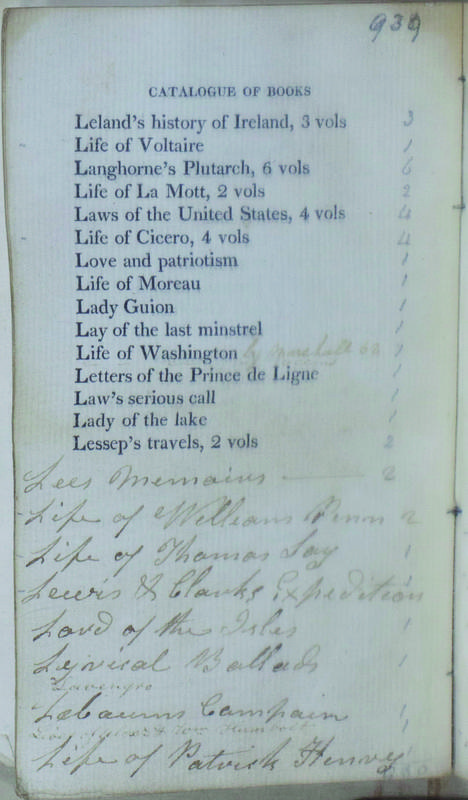 939
CATALOGUE OF BOOKS
Leland's history of Ireland, 3 vols 3
Life of Voltaire 1
Langhorne's Plutarch, 6 vols 6
Life of La Mott, 2 vols 2
Laws of the United States, 4 vols 4
Life of Cicero, 4 vols 4
Love and patriotism 1
Life of Moreau 1
Lady Guion 1
Lay of the last minstrel 1
Life of Washington by 1
Letters of the Prince de Ligne 1
Law's serious call 1
Lady of the lake 1
Lessep's travels, 2 vols 2
Lees Memoirs 2
Life of William Penn 2
Life of Thomas Say 1
Lewis & Clarks Expedition
Lord of the Isles 1
Lyrical Ballads 1
Lavengro
Labaums Campain 1
Humboldt 1
Life of Patrick Henry